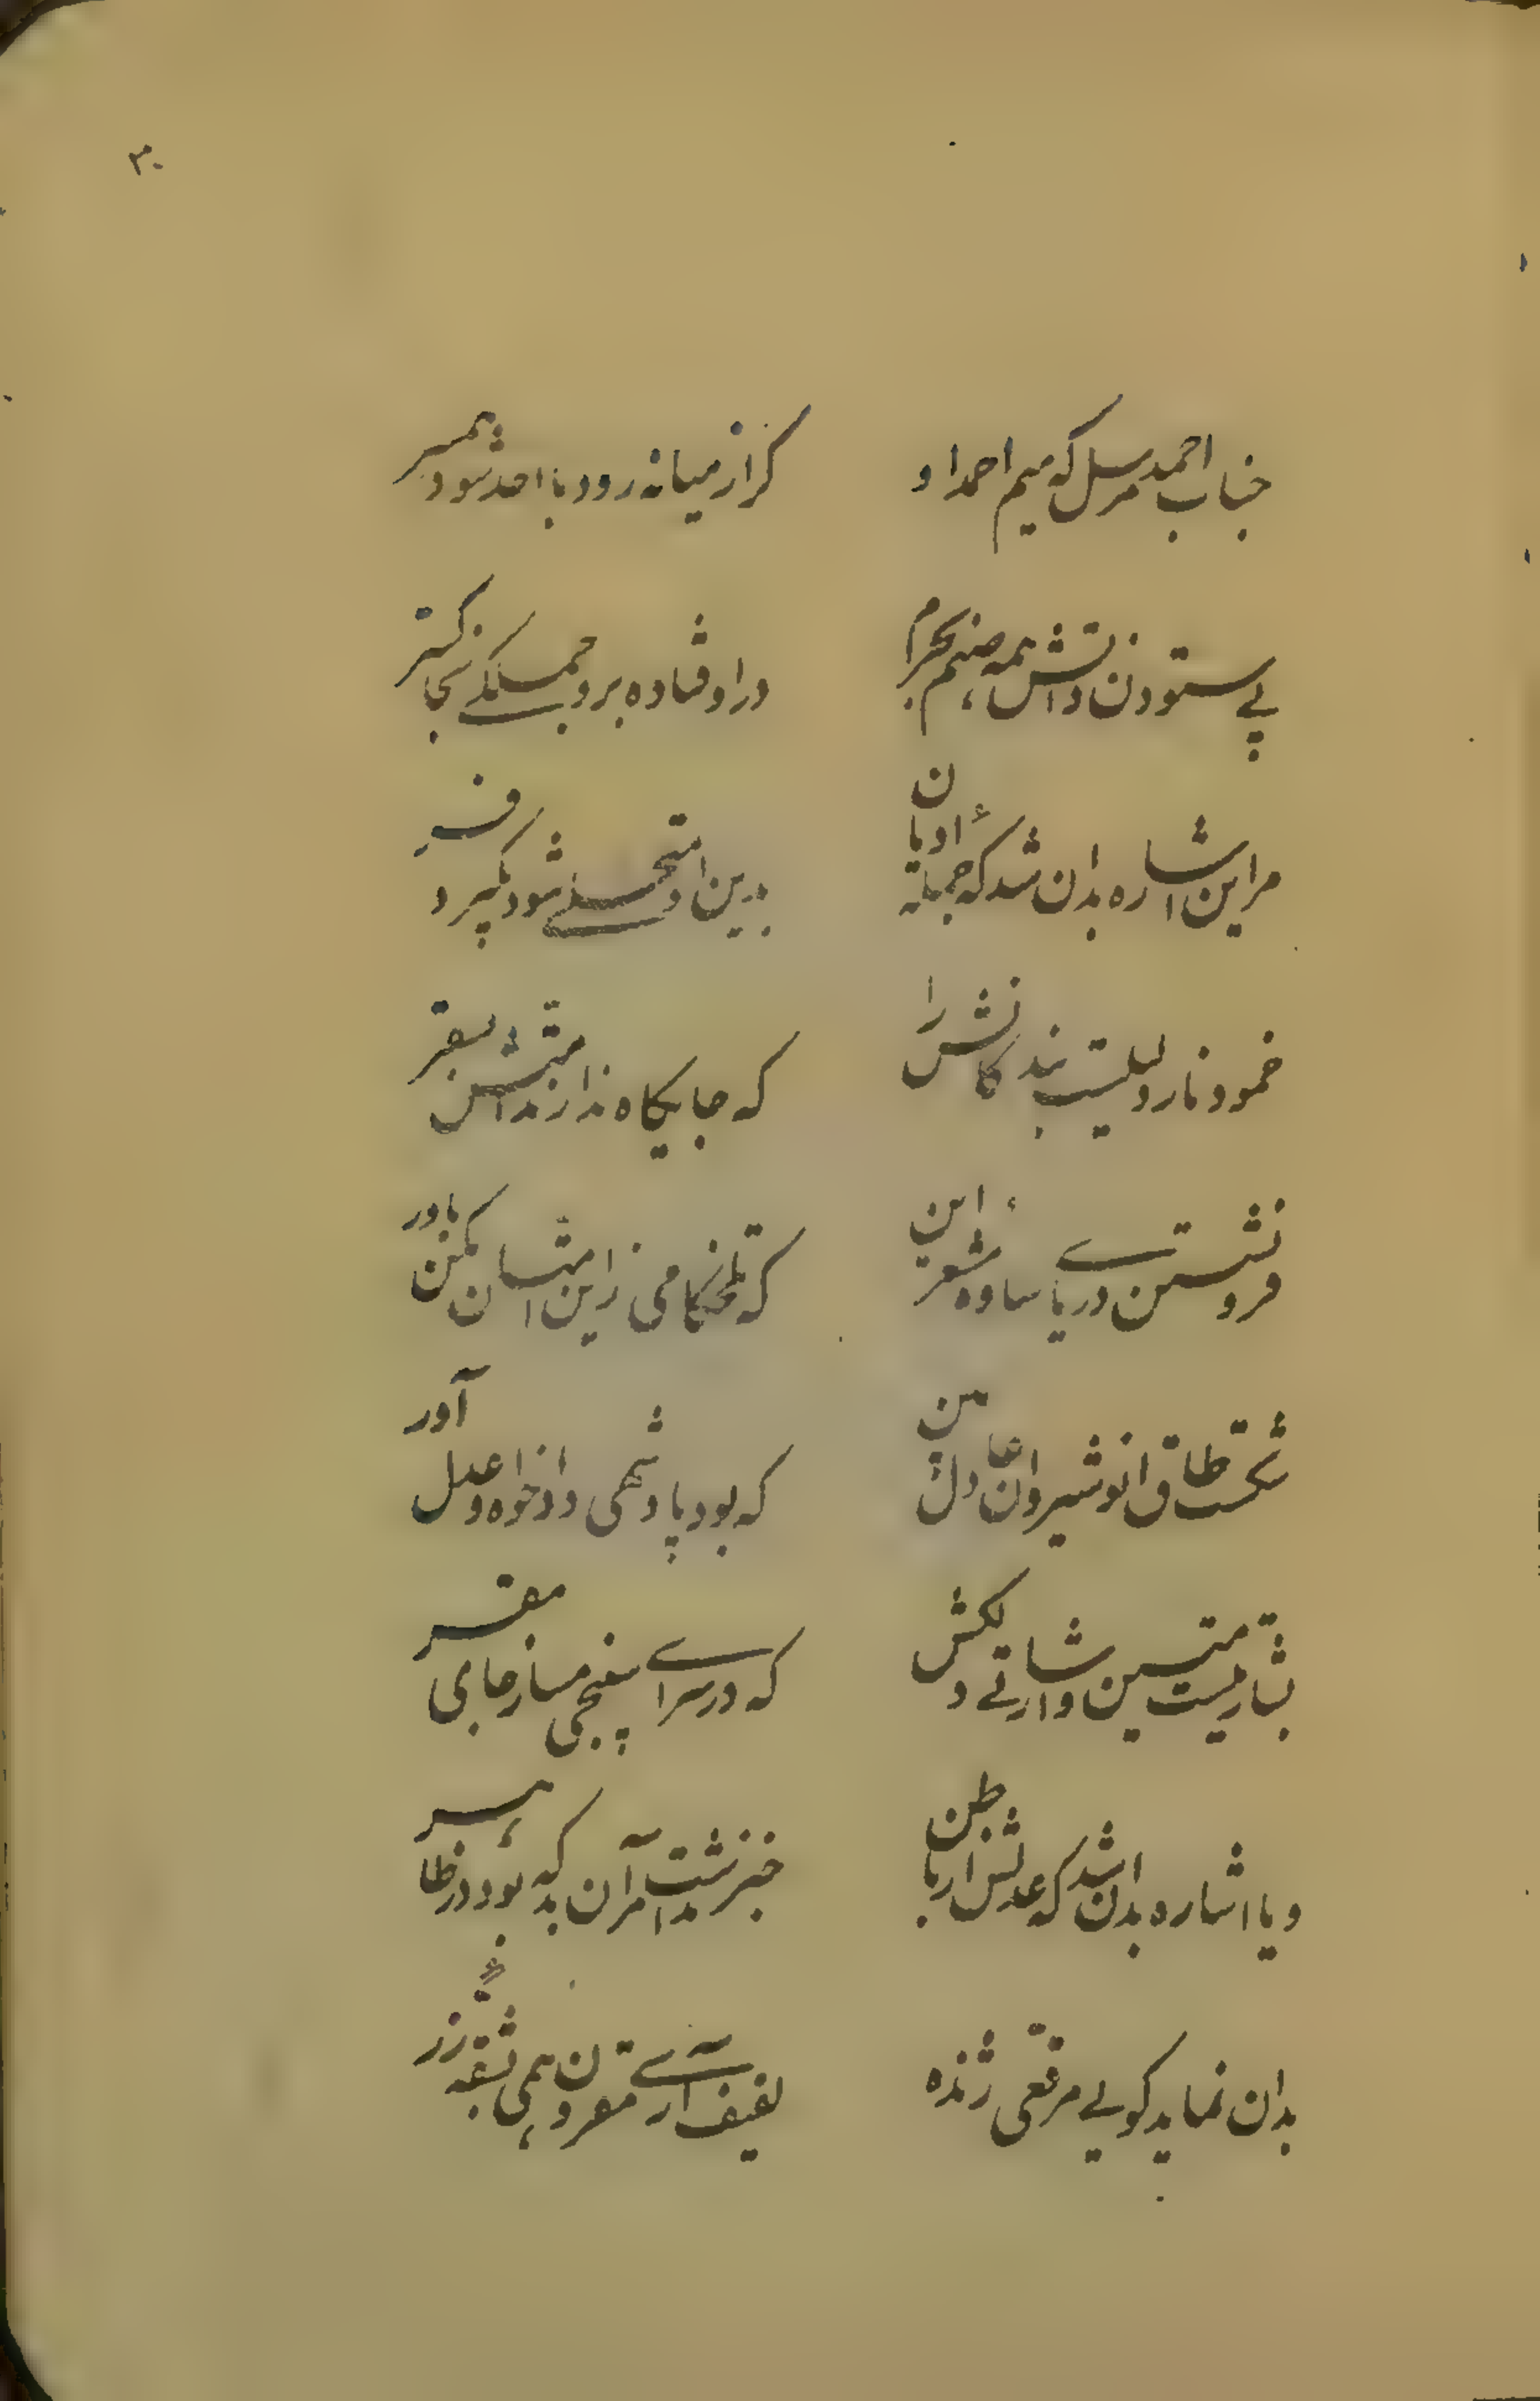 ۳۰
جناب احمد مرسل که میم احمد او
کر از میانه رود با احد شود همسر
پی ستودن ذاتش همه صنم بحرم
در اوفتاده برو جملکی بخاکستر
مر این اشاره بدان شد که جملهٔ ادیان
بدین او متحلی شود بکیرد فر
خمود نار دلیلیست بندکانش را
که جایکاه ندارند امتش بسقر
فرو نشستن دریای ساوه مشعر این
که تلخکامی زاین امتسان مکن باور
شکست طاق انوشیروان عادل من
که بود پادشهی دادخواه و عدل آور
بشارتیست متین و اشارتی دلکش
که در سرای سپنجی مساز جای مقر
و یا اشاره بدان شد که عدلش از باطن
خبر نداشت مر آن بد که بود در ظاهر
بدان نماید کویی مرقعی ژنده
لفیف آری مقرون همی بشقه زر